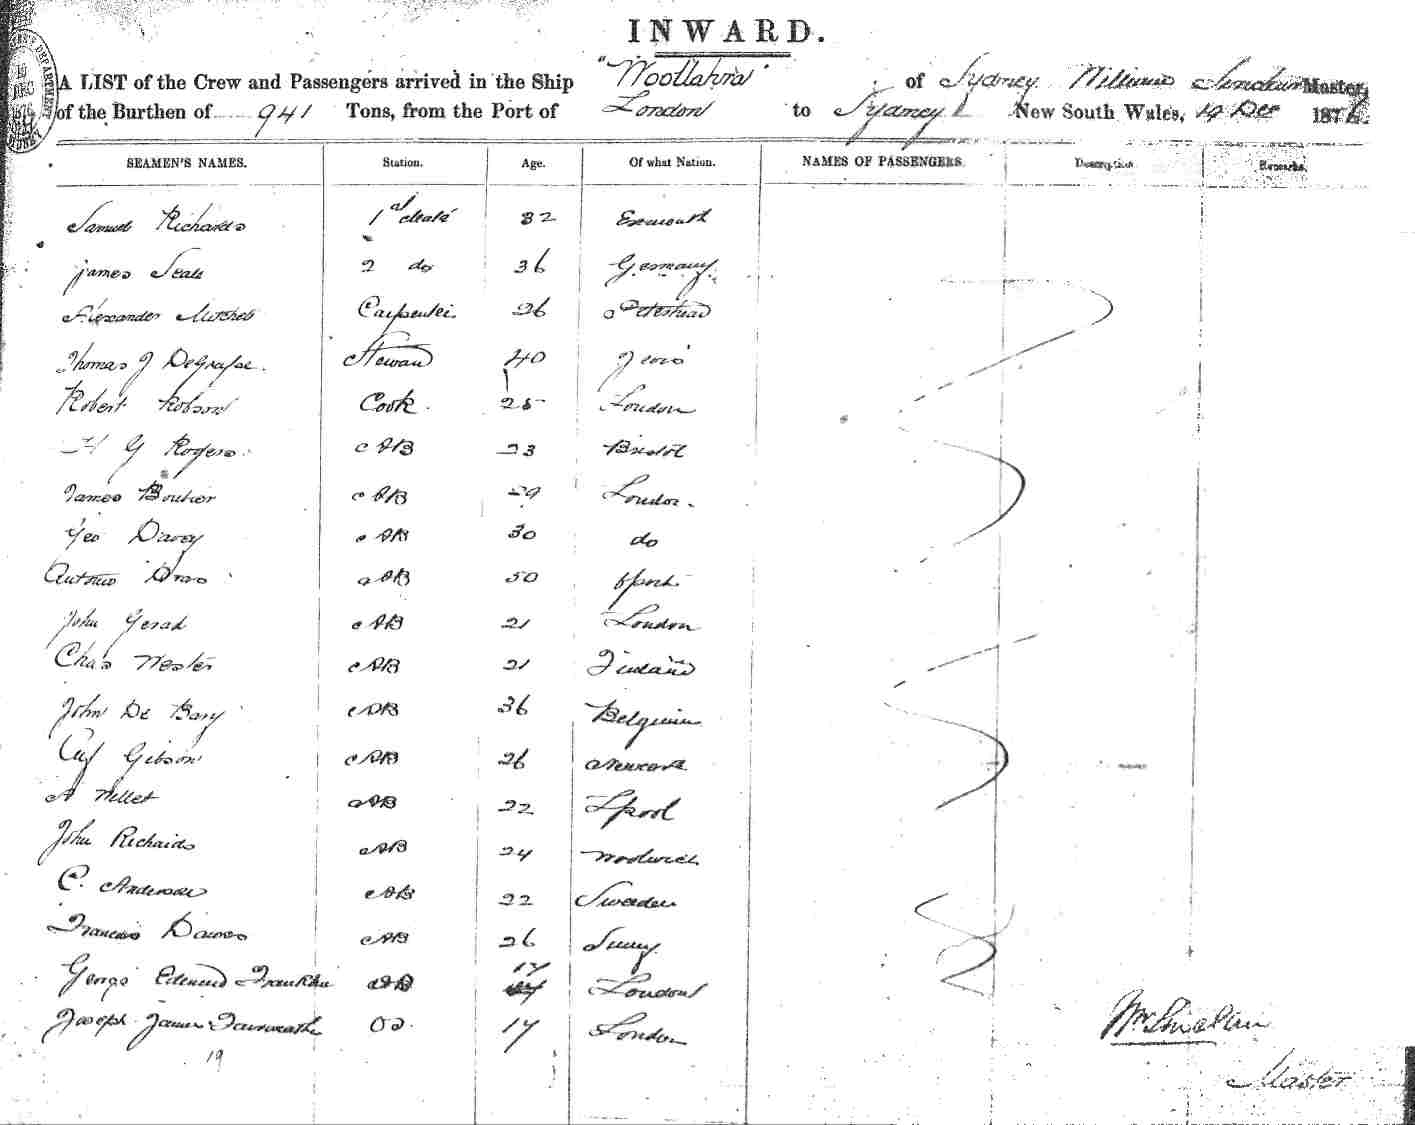 INWARD.
A LIST of the Crew and Passengers arrived in the Ship "Woollahra" of Sydney William Master,
of the Burthen of 941 Tons, from the Port of London to Sydney New South Wales, 19 Dec 187
SEAMEN'S NAMES. Station. Age. Of what Nation. NAMES OF PASSENGERS. Description. Remarks.
Samuel Richards 1st Mate 32 Exmouth
James Seale 2 do 36 Germany
Alexander Mitchell Carpenter 26 Peterhead
Thomas J DeGrasse Steward 40
Robert Robson Cook. 25 London
H G Rogers AB 23 Bristol
James AB 29 London.
Geo Davey AB 30 do
Antonio AB 50
John Gerad AB 21 London
Chas Wester AB 21 Finland
John De Bary AB 36 Belgium
Gibson AB 26
A Millet AB 22 Lpool
John Richards AB 24 Woolwich
C. Anderson AB 22 Sweden
Francis Dawes AB 26
George Edmund Franklin AB 17 London
Joseph James OS. 17 London
19
Master